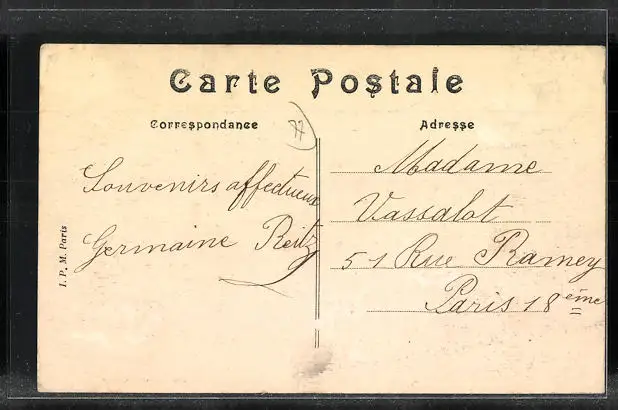 Carte Postale
Correspondance
77
Adresse
Souvenirs affectueux
Germaine Reitz
I. P. M. Paris
Madame
Vassalot
51 Rue Ramey
Paris 18ème